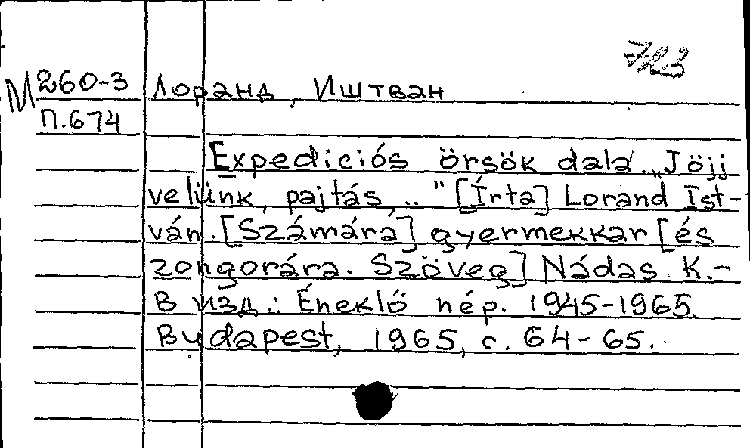 723
М 260-3 Лоранд, Иштван
П.674
Expediciós örsök dala. „Jöjj
velünk, pajtás, .." [Írta] Lorand Ist-
ván. [Számára] gyermekkar [és
zongorára. Szöveg] Nádas K.-
В изд.: Éneklő nép. 1945-1965
Budapest, 1965, с. 64-65.